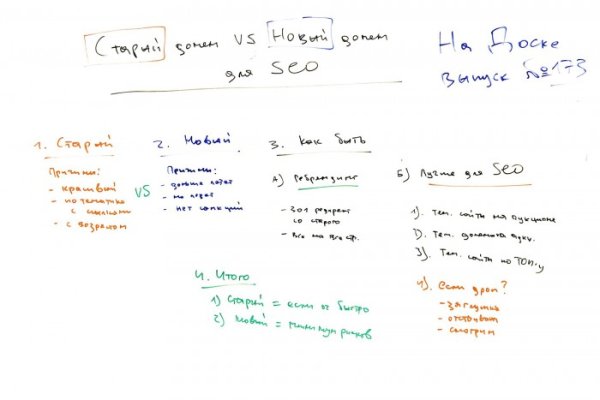 Старый домен VS Новый домен
для SEO
На Доске
выпуск №173
1. Старый
Причины:
- красивый
- по тематике
с ссылками
- с возрастом
VS
2. Новый
Причины:
- дольше
- нет санкций
3. Как быть
А) Ребрендинг
- 301 редирект
со старого
- Все на все стр.
Б) Лучше для SEO
1). Тем. сайты на аукционе
2). Тем. домена аукц.
3). Тем. сайты по ТОП-у
4). если дроп?
- заглушка
- отстаиваем
- смотрим
4. Итого
1) Старый = если ок быстро
2) Новый = минимум рисков